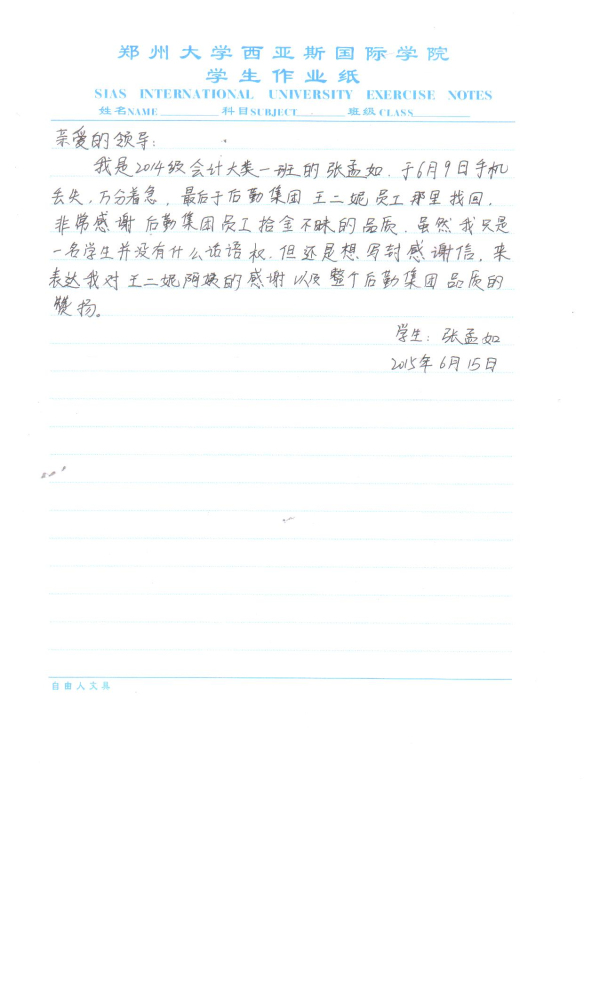 郑州大学西亚斯国际学院
学生作业纸
SIAS INTERNATIONAL UNIVERSITY EXERCISE NOTES
姓名NAME 科目SUBJECT 班级CLASS
亲爱的领导:
我是2014级会计大类一班的张孟如.于6月9日手机
丢失,万分着急,最后于后勤集团王二妮员工那里找回.
非常感谢后勤集团员工拾金不昧的品质.虽然我只是
一名学生并没有什么话语权.但还是想写封感谢信,来
表达我对王二妮阿姨的感谢以及整个后勤集团品质的
赞扬。
学生:张孟如
2015年6月15日
自由人文具